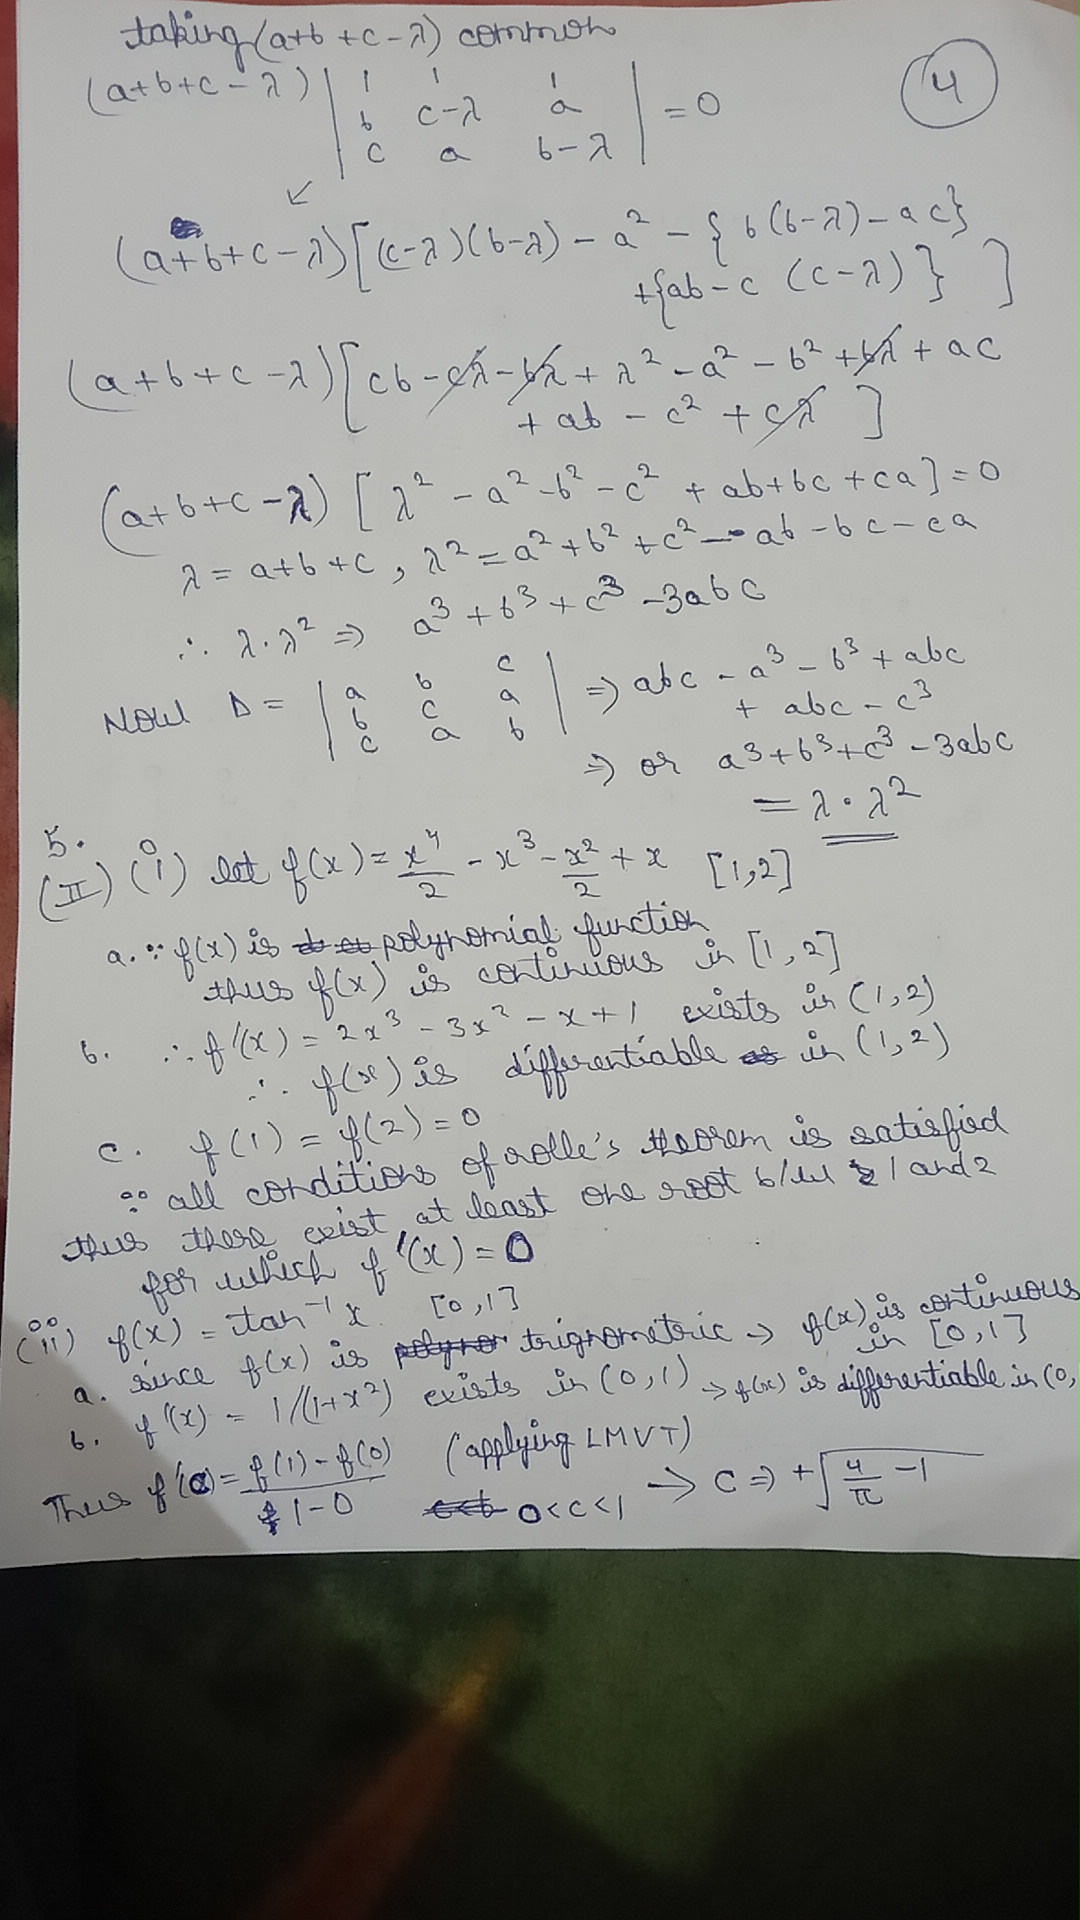 taking (a+b+c-λ) common
④
(a+b+c-λ) | 1 1 1 |
| b c-λ a | = 0
| c a b-λ |
↙
(a+b+c-λ)[(c-λ)(b-λ) - a² - {b(b-λ) - ac}
+{ab - c (c-λ)} ]
(a+b+c-λ)[cb - cλ - bλ + λ² - a² - b² + bλ + ac
+ ab - c² + cλ ]
(a+b+c-λ) [λ² - a² - b² - c² + ab+bc+ca] = 0
λ = a+b+c, λ² = a²+b²+c² - ab - bc - ca
∴ λ·λ² ⇒ a³+b³+c³ - 3abc
Now D = | a b c | ⇒ abc - a³ - b³ + abc
| b c a | + abc - c³
| c a b |
⇒ or a³+b³+c³ - 3abc
= λ·λ²
5.
(II) (i) let f(x) = x⁴/2 - x³ - x²/2 + x [1,2]
a. ∵ f(x) is polynomial function
thus f(x) is continuous in [1,2]
b. ∴ f'(x) = 2x³ - 3x² - x + 1 exists in (1,2)
∴ f(x) is differentiable in (1,2)
c. f(1) = f(2) = 0
∵ all conditions of rolle's theorem is satisfied
thus there exist at least one root b/w 1 and 2
for which f'(x) = 0
(ii) f(x) = tan⁻¹x [0,1]
a. since f(x) is trignometric → f(x) is continuous
in [0,1]
b. f'(x) = 1/(1+x²) exists in (0,1) → f(x) is differentiable in (0,
Thus f'(c) = f(1) - f(0) / 1-0 (applying LMVT)
0<c<1 → c ⇒ +√(4/π - 1)